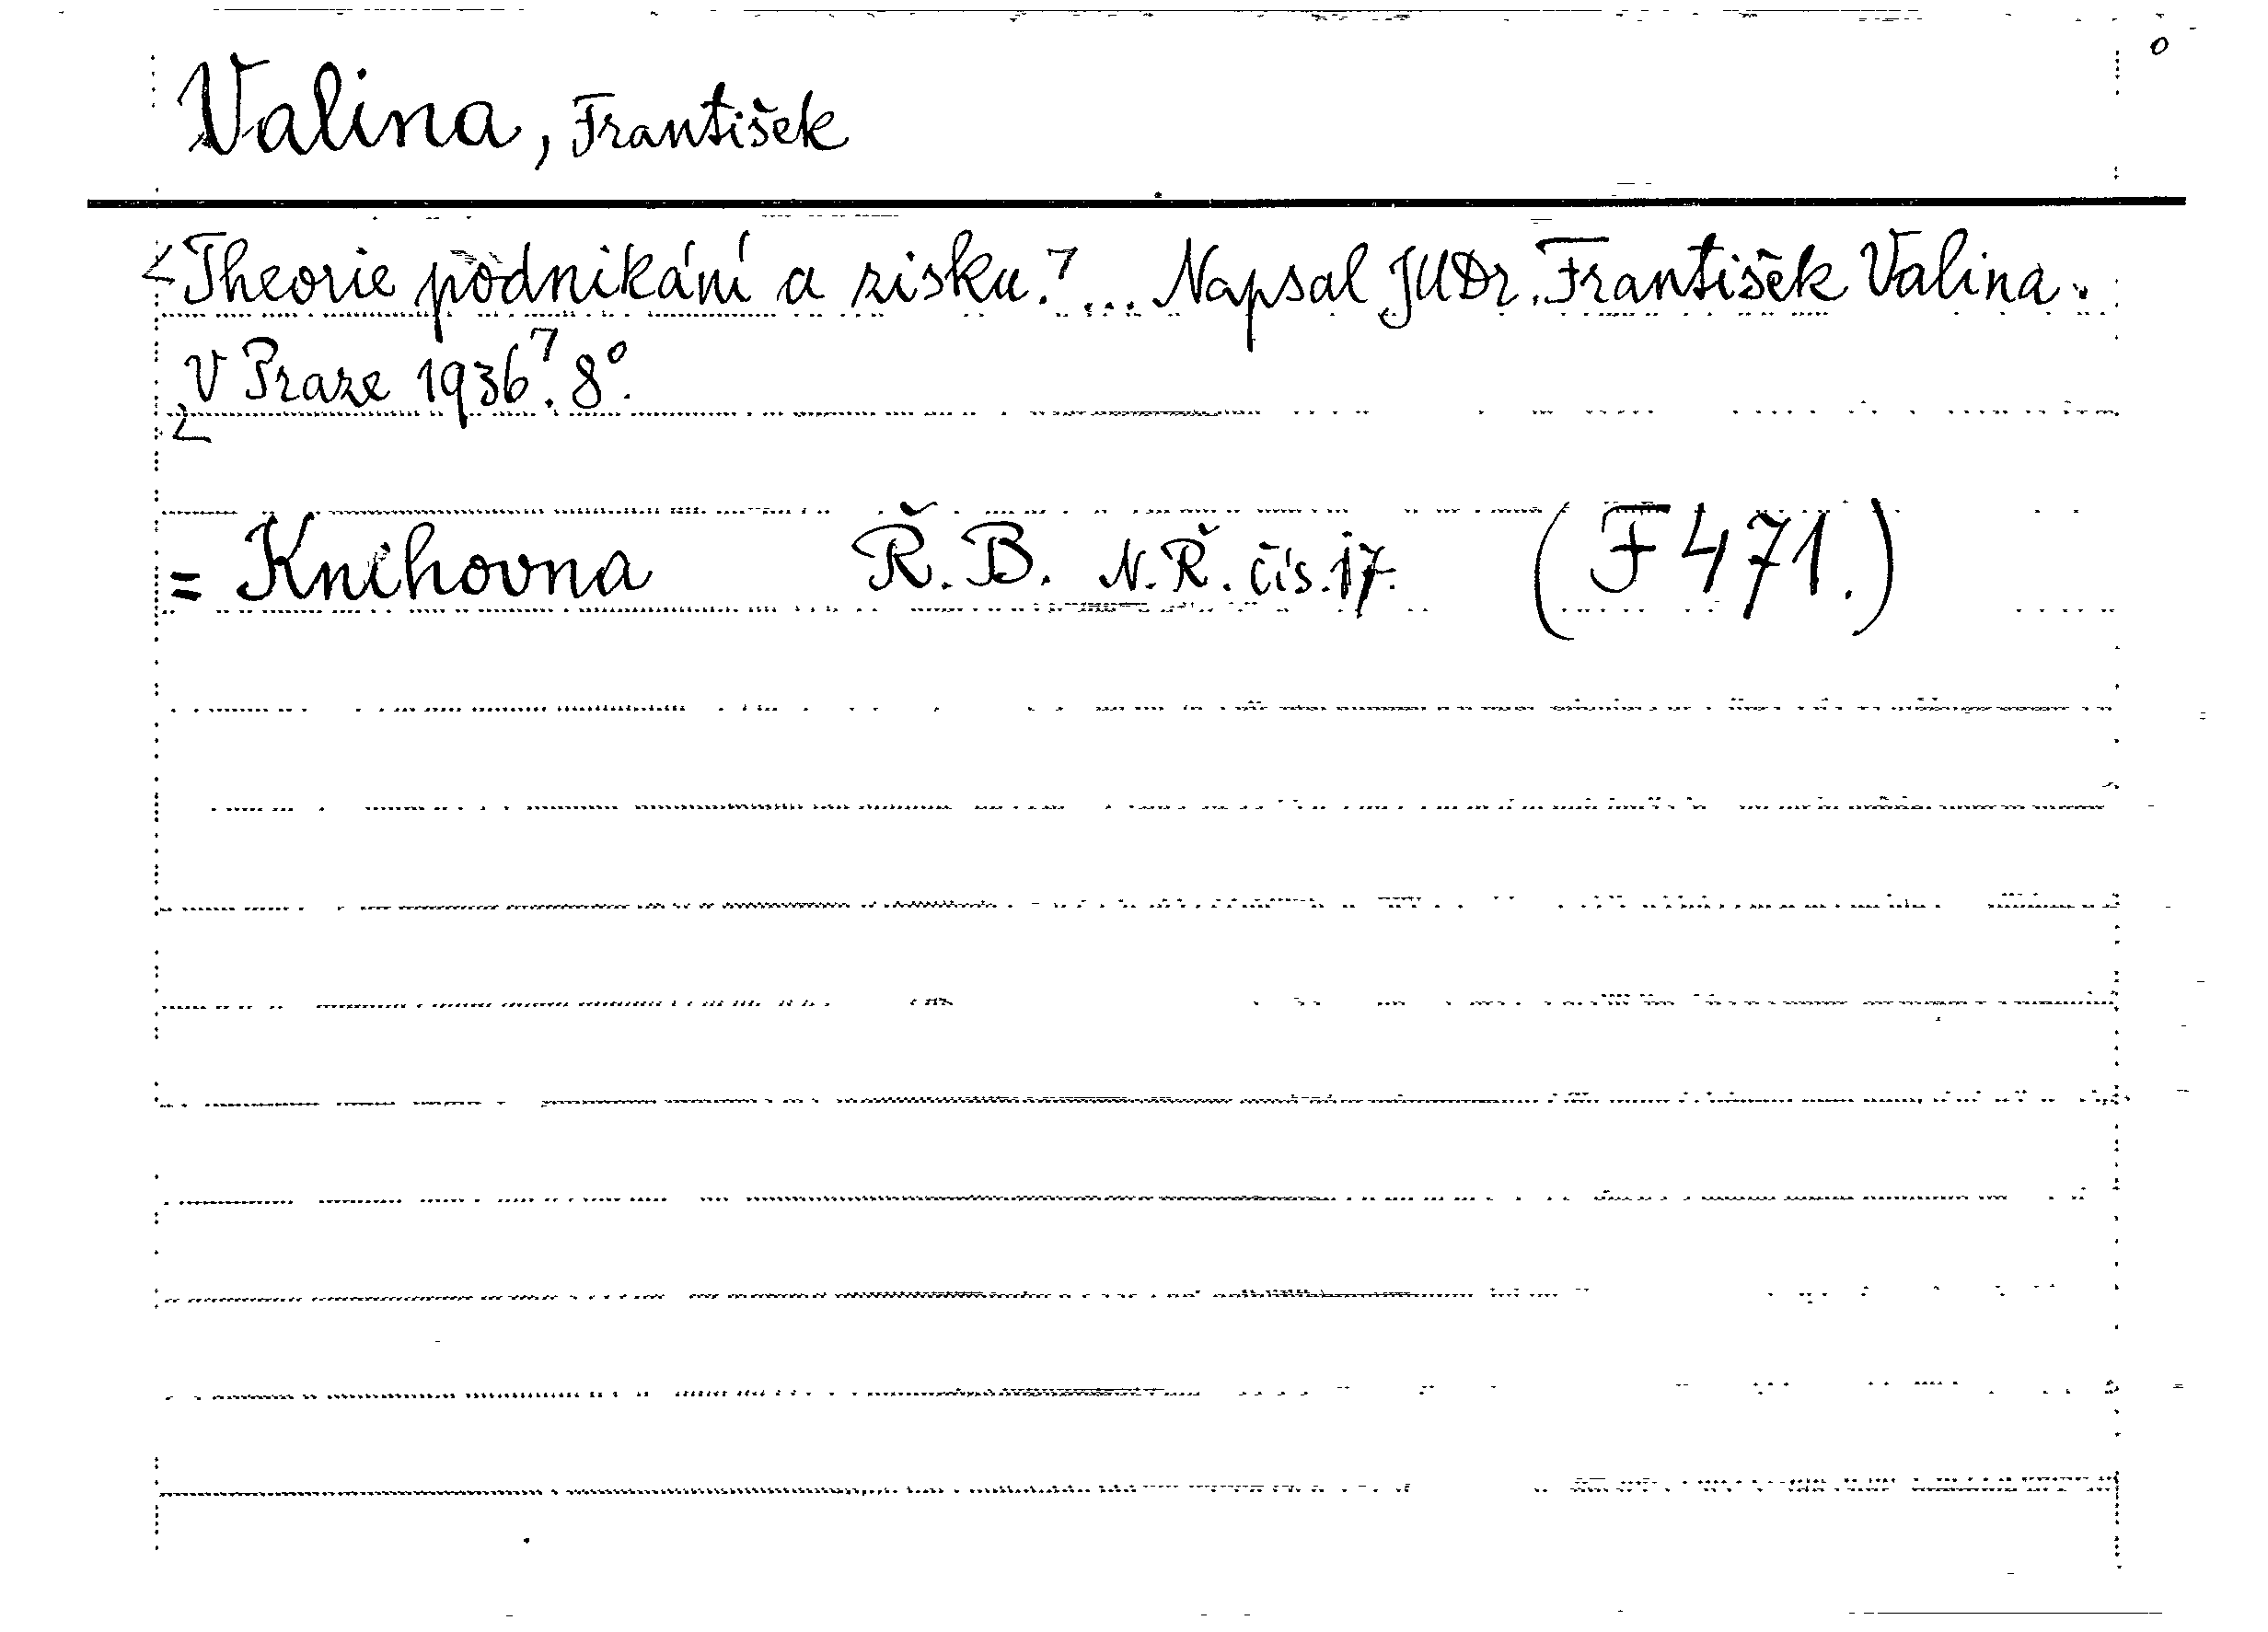 Valina, František
<Theorie podnikání a zisku.> ... Napsal JUDr. František Valina.
<V Praze 1936>. 8°.
= Knihovna Ř. B. N. Ř. čís. 17. (F 471.)